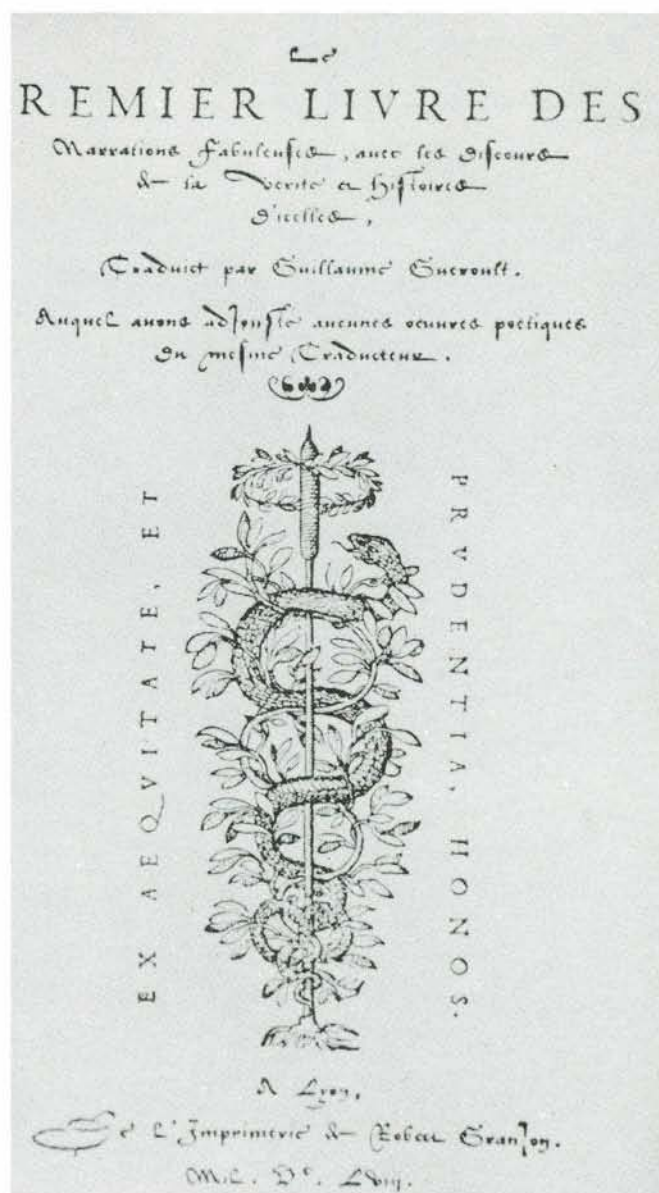 Le
REMIER LIVRE DES
Narrations fabuleuses, avec les discours
de la verite et histoires
d'icelles,
Traduict par Guillaume Gueroult.
Auquel avons adjouste aucunes oeuvres poetiques
du mesme Traducteur.
EX AEQVITATE, ET
PRVDENTIA, HONOS.
A Lyon,
De l'Imprimerie de Robert Granjon.
M.C. Vc. Lviij.